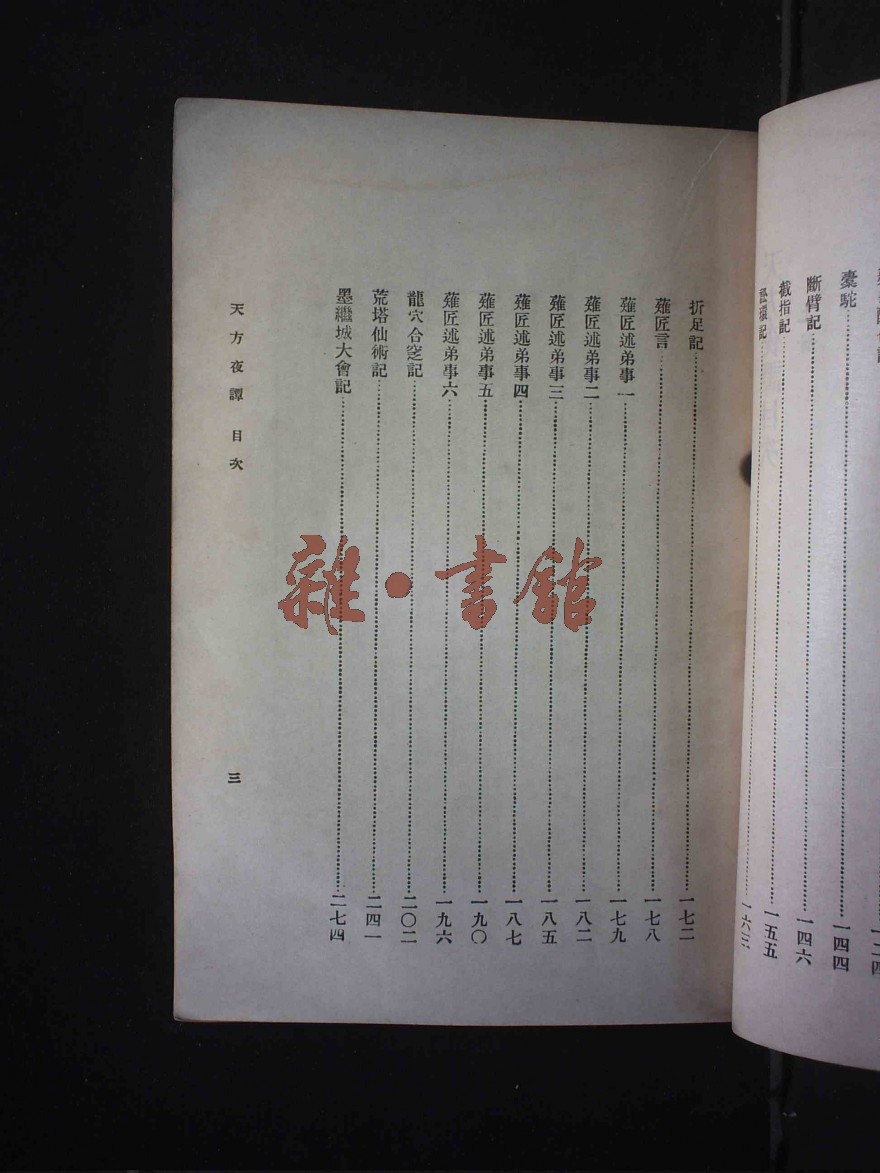 橐駝……一四四
斷臂記……一四六
截指記……一五五
折足記……一七二
薙匠言……一七八
薙匠述弟事一……一七九
薙匠述弟事二……一八二
薙匠述弟事三……一八五
薙匠述弟事四……一八七
薙匠述弟事五……一九〇
薙匠述弟事六……一九六
龍穴合窆記……二〇二
荒塔仙術記……二四一
墨繼城大會記……二七四
天方夜譚 目次
三
雜·書館